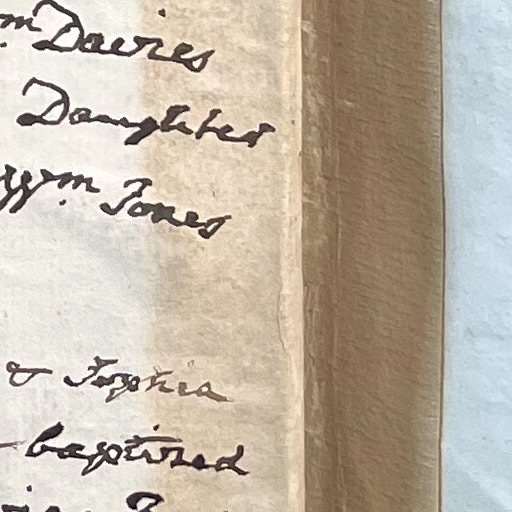 m Davies
Daughter
m. Jones
& Sophia
baptized